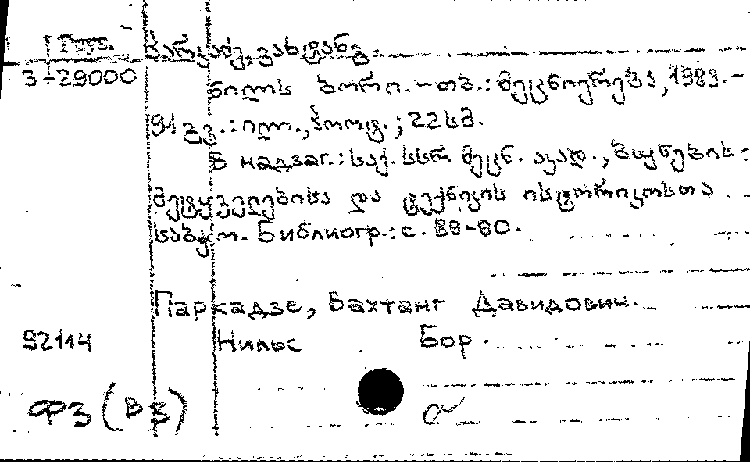 Груз. პარკაძე, ვახტანგ.
3-29000 ნილს ბორი. - თბ.: მეცნიერება, 1989. -
91 გვ.: ილ., პორტ.; 22 სმ.
В надзаг.: საქ. სსრ მეცნ. აკად., ბუნების-
მეტყველებისა და ტექნიკის ისტორიკოსთა
საბჭო. Библиогр.: с. 89-90.
Паркадзе, Вахтанг Давидович.
92114 Нильс Бор.
ФЗ (ВЗ)